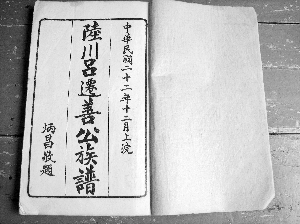 中華民國二十二年十二月上浣
陸川呂遷善公族譜
炳昌敬題